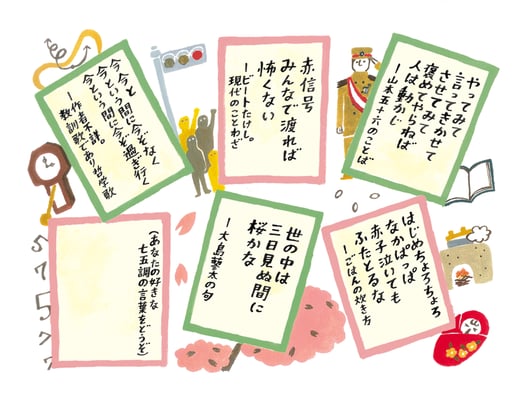 やってみて
言ってきかせて
させてみて
褒めてやらねば
人は動かじ
ー山本五十六のことば
赤信号
みんなで渡れば
怖くない
ービートたけし。
現代のことわざ
今、今と
今という間に今ぞなく
今という間に今ぞ過ぎ行く
ー作者不詳。
教訓歌であり哲学歌
はじめちょろちょろ
なかぱっぱ
赤子泣いても
ふたとるな
ーごはんの炊き方
世の中は
三日見ぬ間に
桜かな
ー大島蓼太の句
(あなたの好きな
七五調の言葉をどうぞ)
5
7
5
7
7